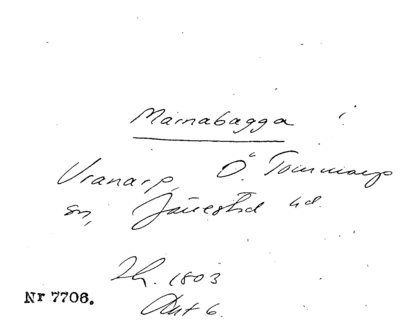 Marnabagga i
Vranarp, Ö. Tommarp
sn, Järrestad hd.
Lh. 1803
Akt 6.
Nr 7706.